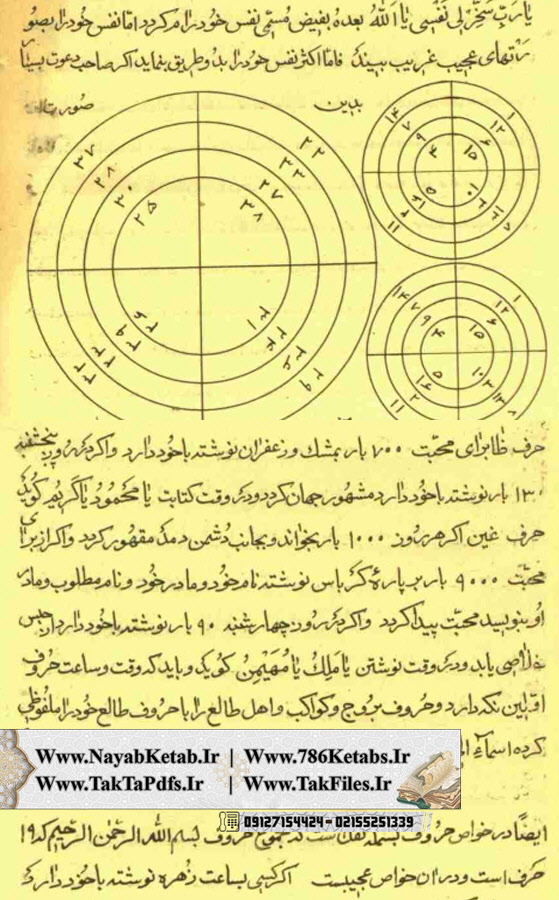 یا رب سخر لی نفسی یا الله بعده بفیض مستمی نفس خود رام کردد اما نفس خود را بصو
رتهای عجیب غریب بیند فاما اکثر نفس خود را بدو طریق بنماید اکر صاحب دعوت بسیار
بدین صورت
۳۷ ۲۲
۲۸ ۳۳
۳۰ ۲۷
۲۵ ۳۸
۱۴ ۱
۷ ۱۲
۹ ۶
۴ ۱۵
۵ ۱۰
۱۱ ۸
۱۴ ۱
۷ ۱۲
۹ ۶
۴ ۱۵
۵
۱۱ ۲ ۸
حرف ظا برای محبت ۷۰۰ بار بمشك و زعفران نوشته با خود دارد و اکر در روز پنجشنبه
۱۳۰ بار نوشته با خود دارد مشهور جهان کردد و در وقت کتابت یا محمود یا کریم کوید
حرف غین اکر هر روز ۱۰۰۰ بار بخواند و بجانب دشمن دمد مقهور کردد و اکر از برای
محبت ۹۰۰۰ بار بر پارۀ کرباس نوشته نام خود و مادر خود و نام مطلوب و مادر
او بنویسد محبت پیدا کردد و اکر در روز چهارشنبه ۹۰ بار نوشته با خود دارد از حبس
خلاصی یابد و در وقت نوشتن یا ملك یا مهیمن کوید و باید که وقت و ساعت حروف
اولین نکه دارد و حروف بروج و کواکب و اهل طالع را با حروف طالع خود را ملفوظی
کرده اسماء
Www.NayabKetab.Ir | Www.786Ketabs.Ir
Www.TakTaPdfs.Ir | Www.TakFiles.Ir
09127154424 - 02155251339
ایضا در خواص حروف بسمله نقل است که مجموع حروف بسم الله الرحمن الرحیم که ۱۹
حرف است و در ان خواص عجیبست اکر کسی بساعت زهره نوشته با خود دارد